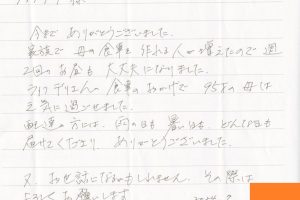 今まで ありがとうございました。
家族で 母の食事を 作れる人が増えたので 週
2回のお昼も 大丈夫になりました。
ライフデリさんの 食事のおかげで 95才の母は
元気に過ごせました。
配達の方には、雨の日も 暑い日も どんな日も
届けてくださり、ありがとうございました。
又、お世話になるかもしれません。その際は
よろしくお願いします